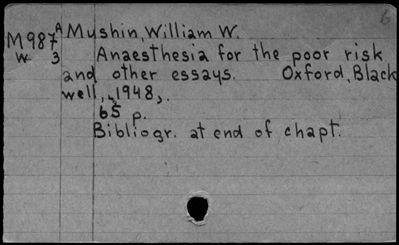 6
A Mushin, William W.
M987
W 3 Anaesthesia for the poor risk
and other essays. Oxford, Black
well, 1948.
65 p.
Bibliogr. at end of chapt.